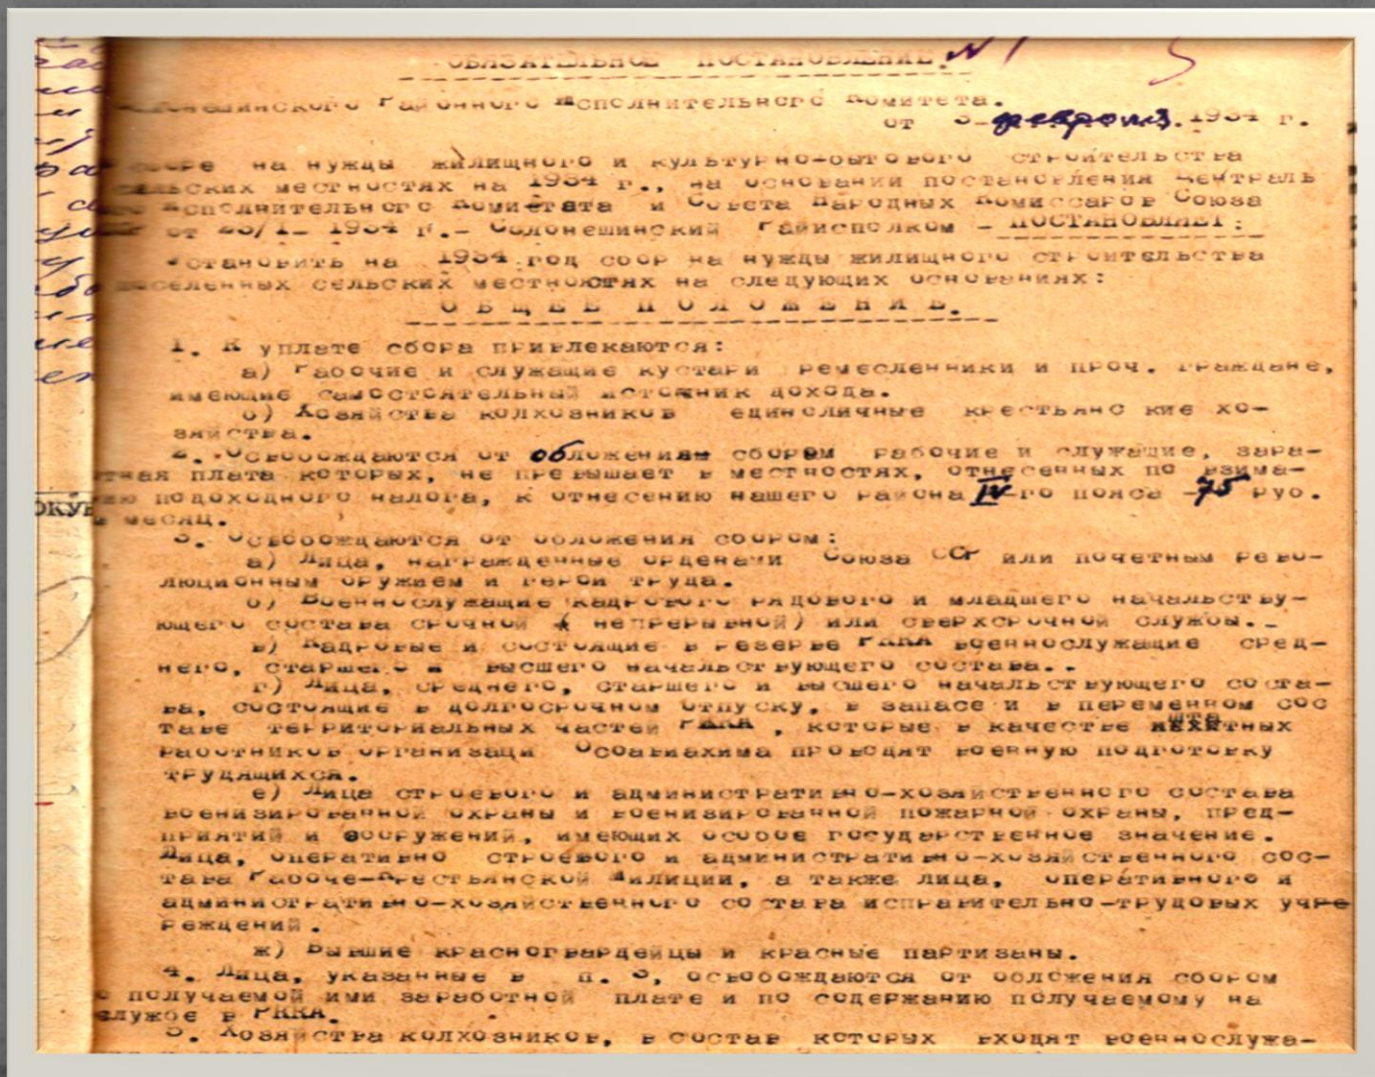 ОБЯЗАТЕЛЬНОЕ ПОСТАНОВЛЕНИЕ. N 1
Солонешинского Районного Исполнительного Комитета.
от 3 февраля. 1934 г.
сборе на нужды жилищного и культурно-бытового строительства
сельских местностях на 1934 г., на основании постановления Централь
Исполнительного Комитета и Совета Народных Комиссаров Союза
от 23/1- 1934 г.- Солонешинский Райисполком - ПОСТАНОВЛЯЕТ:
Установить на 1934 год сбор на нужды жилищного строительства
населенных сельских местностях на следующих основаниях:
О Б Щ Е Е П О Л О Ж Е Н И Е.
1. К уплате сбора привлекаются:
а) Рабочие и служащие кустари ремесленники и проч. граждане,
имеющие самостоятельный источник дохода.
б) Хозяйства колхозников единоличные крестьянс кие хо-
зяйства.
2. Освобождаются от обложения сбором рабочие и служащие, зара-
тная плата которых, не превышает в местностях, отнесенных по взима-
нию подоходного налога, к отнесению нашего района IV го пояса -75 руб.
в месяц.
ОКУ
3. Освобождаются от обложения сбором:
а) Лица, награжденные орденами Союза ССР или почетным рево-
люционным оружием и герои труда.
б) Военнослужащие кадрового рядового и младшего начальству-
ющего состава срочной ( непрерывной) или сверхсрочной службы..
в) Кадровые и состоящие в резерве РККА военнослужащие сред-
него, старшего и высшего начальствующего состава..
г) Лица, среднего, старшего и высшего начальствующего соста-
ва, состоящие в долгосрочном отпуску, в запасе и в переменном сос
таве территориальных частей РККА , которые в качестве штатных
работников организаци Осоавиахима проводят военную подготовку
трудящихся.
е) Лица строевого и административно-хозяйственного состава
военизированной охраны и военизированной пожарной охраны, пред-
приятий и сооружений, имеющих особое государственное значение.
Лица, оперативно строевого и административно-хозяйственного сос-
тава Рабоче-Крестьянской Милиции, а также лица, оперативного и
административно-хозяйственного состава исправительно-трудовых учре
реждений.
ж) Бывшие красногвардейцы и красные партизаны.
4. Лица, указанные в п. 3, освобождаются от обложения сбором
о получаемой ими заработной плате и по содержанию получаемому на
службе в РККА.
5. Хозяйства колхозников, в состав которых входят военнослужа-